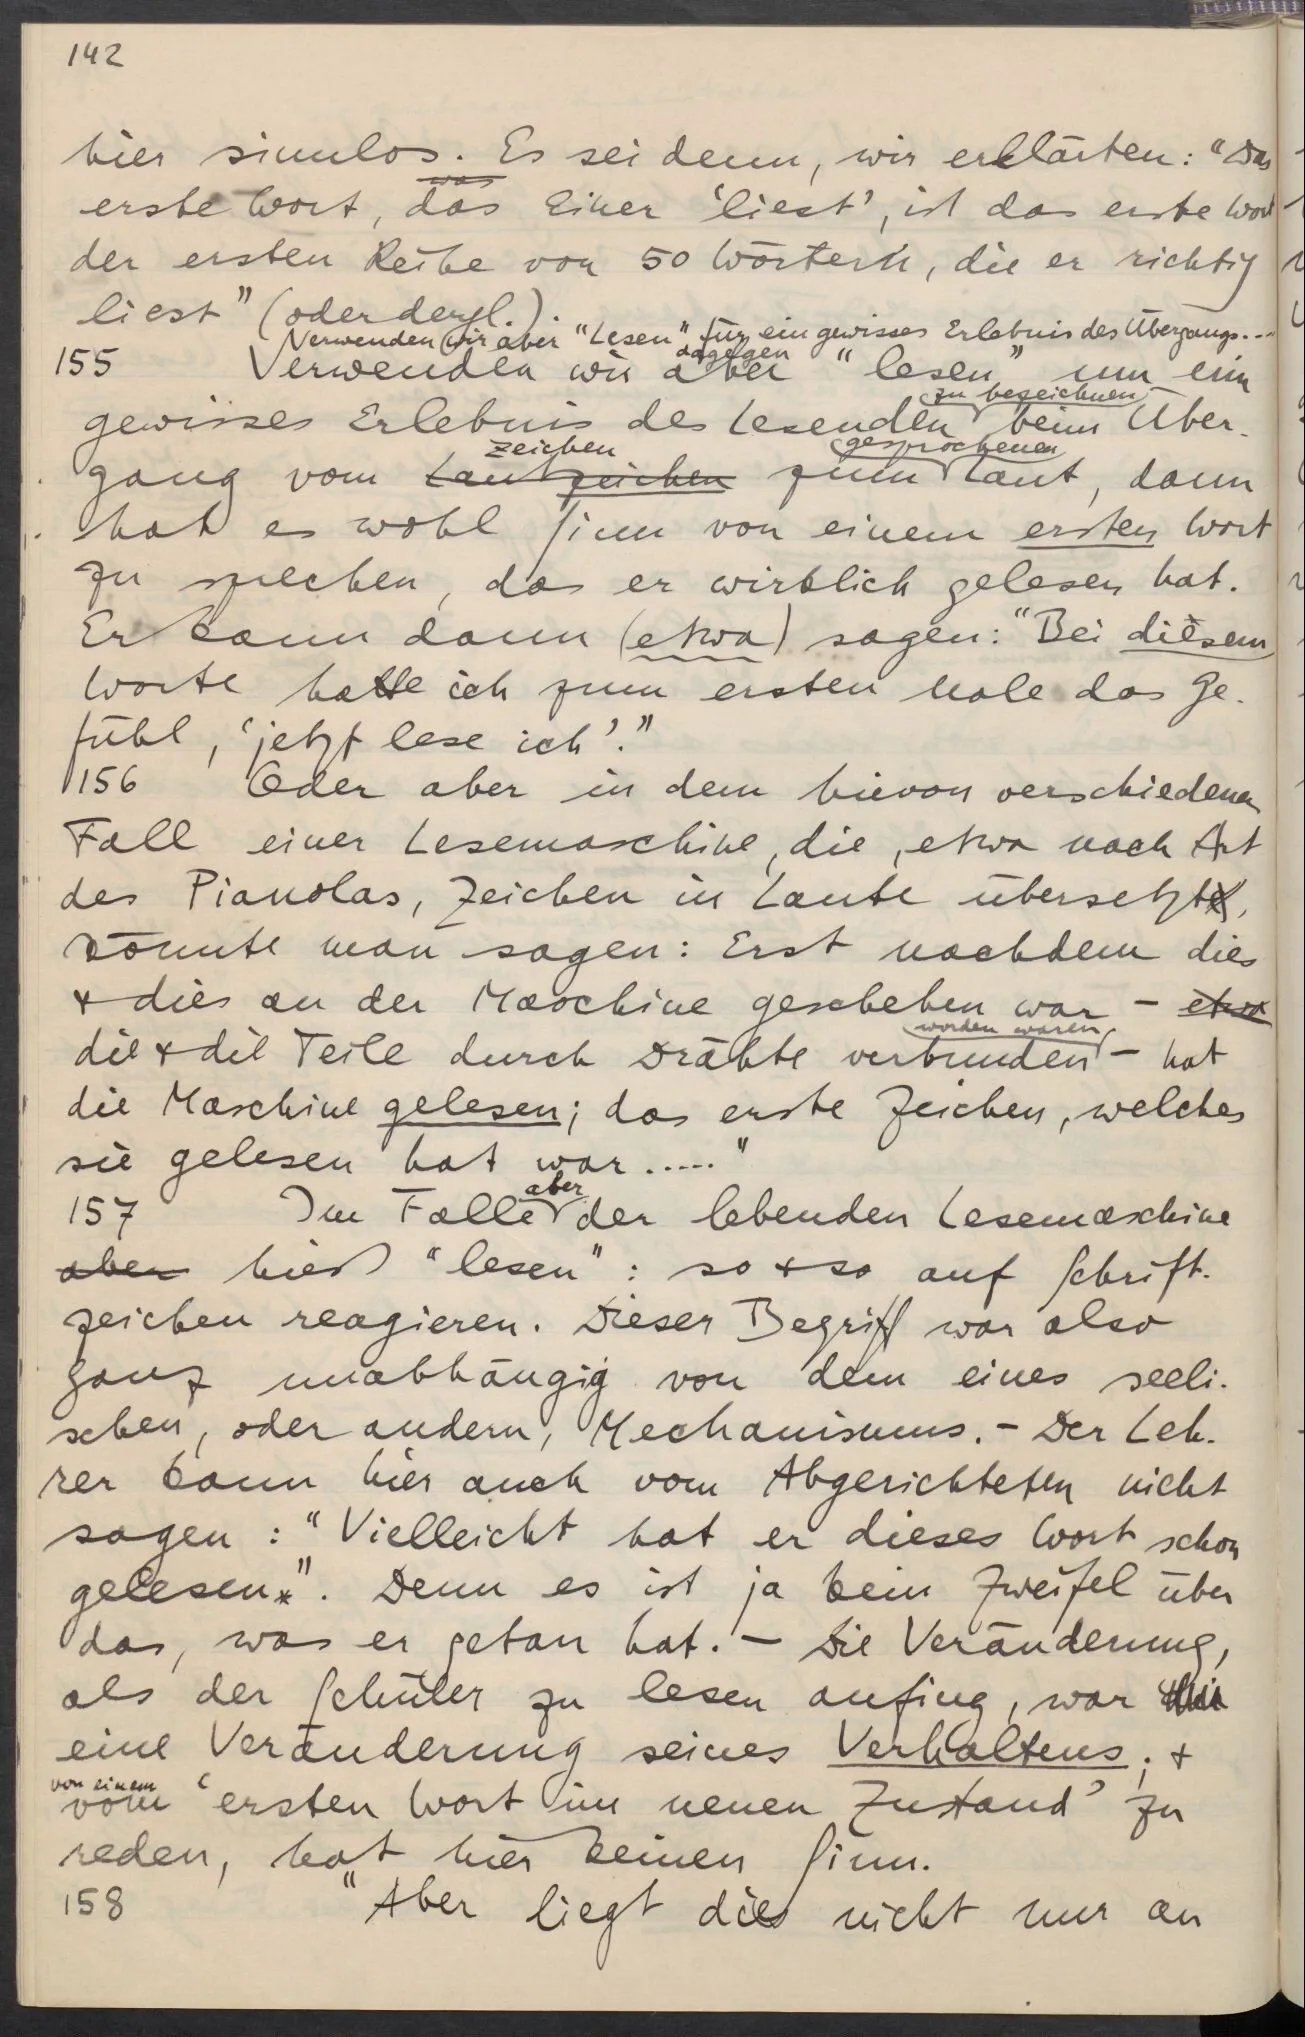 142
hier sinnlos. Es sei denn, wir erklärten: "Das
was
erste Wort, das Einer 'liest', ist das erste Wort
der ersten Reihe von 50 Wörtern, die er richtig
liest" (oder dergl.).
Verwenden wir aber "Lesen" für ein gewisses Erlebnis des Übergangs....
dagegen
155 Verwenden wir aber "lesen" um ein
zu bezeichnen
gewisses Erlebnis des Lesenden beim Über-
zeichen gesprochenen
gang vom Lautzeichen zum Laut, dann
hat es wohl Sinn von einem ersten Wort
zu sprechen, das er wirklich gelesen hat.
Er kann dann (etwa) sagen: "Bei diesem
Worte hatte ich zum ersten Male das Ge-
fühl, 'jetzt lese ich'."
156 Oder aber in dem hievon verschiedenen
Fall einer Lesemaschine, die, etwa nach Art
des Pianolas, Zeichen in Laute übersetzt,
könnte man sagen: Erst nachdem dies
& dies an der Maschine geschehen war – etwa
worden waren
die & die Teile durch Drähte verbunden – hat
die Maschine gelesen; das erste Zeichen, welches
sie gelesen hat war....."
aber
157 Im Falle der lebenden Lesemaschine
aber hieß "lesen": so & so auf Schrift-
zeichen reagieren. Dieser Begriff war also
ganz unabhängig von dem eines seeli-
schen, oder andern, Mechanismus. – Der Leh-
rer kann hier auch vom Abgerichteten nicht
sagen: "Vielleicht hat er dieses Wort schon
gelesen*". Denn es ist ja kein Zweifel über
das, was er getan hat. – Die Veränderung,
als der Schüler zu lesen anfing, war
eine Veränderung seines Verhaltens; &
von einem
vom 'ersten Wort im neuen Zustand' zu
reden, hat hier keinen Sinn.
158 "Aber liegt dies nicht nur an